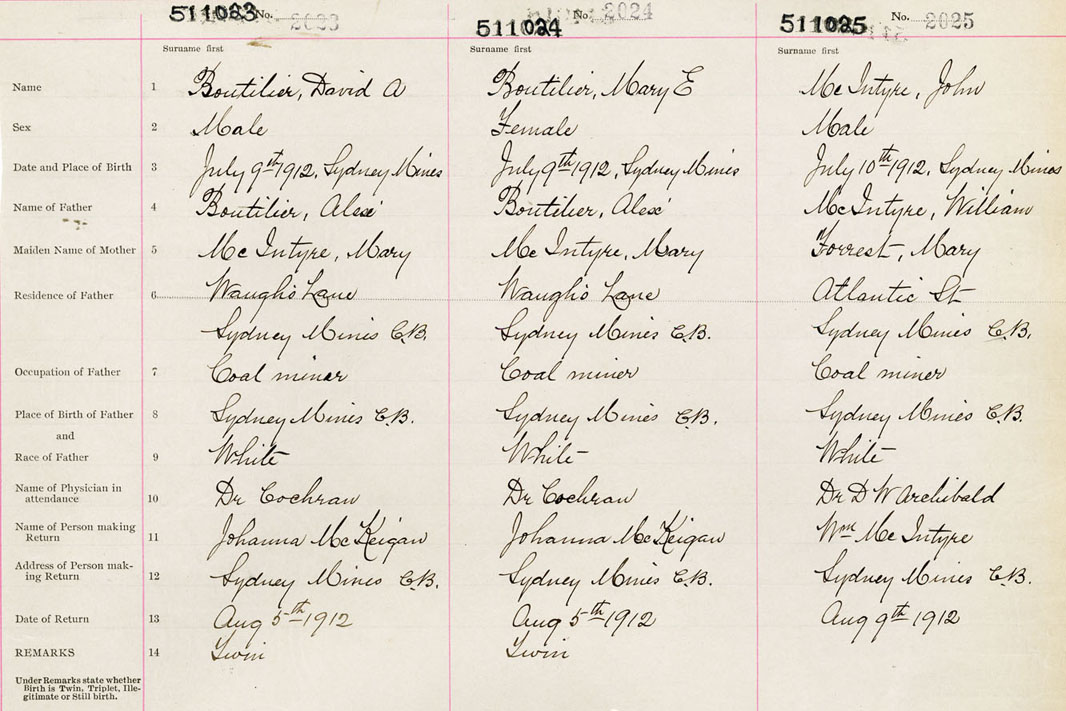 511023 No. 2023 511024 No. 2024 511025 No. 2025
Surname first Surname first Surname first
Name 1 Boutilier, David A Boutilier, Mary E Mc Intyre, John
Sex 2 Male Female Male
Date and Place of Birth 3 July 9th 1912, Sydney Mines July 9th 1912, Sydney Mines July 10th 1912, Sydney Mines
Name of Father 4 Boutilier, Alex Boutilier, Alex Mc Intyre, William
Maiden Name of Mother 5 Mc Intyre, Mary Mc Intyre, Mary Forrest, Mary
Residence of Father 6 Waugh's Lane Waugh's Lane Atlantic St
Sydney Mines C.B. Sydney Mines C.B. Sydney Mines C.B.
Occupation of Father 7 Coal miner Coal miner Coal miner
Place of Birth of Father 8 Sydney Mines C.B. Sydney Mines C.B. Sydney Mines C.B.
and
Race of Father 9 White White White
Name of Physician in
attendance 10 Dr Cochran Dr Cochran Dr D W Archibald
Name of Person making
Return 11 Johanna McKeigan Johanna McKeigan Wm Mc Intyre
Address of Person mak-
ing Return 12 Sydney Mines C.B. Sydney Mines C.B. Sydney Mines C.B.
Date of Return 13 Aug 5th 1912 Aug 5th 1912 Aug 9th 1912
REMARKS 14 Twin Twin
Under Remarks state whether
Birth is Twin, Triplet, Ille-
gitimate or Still birth.